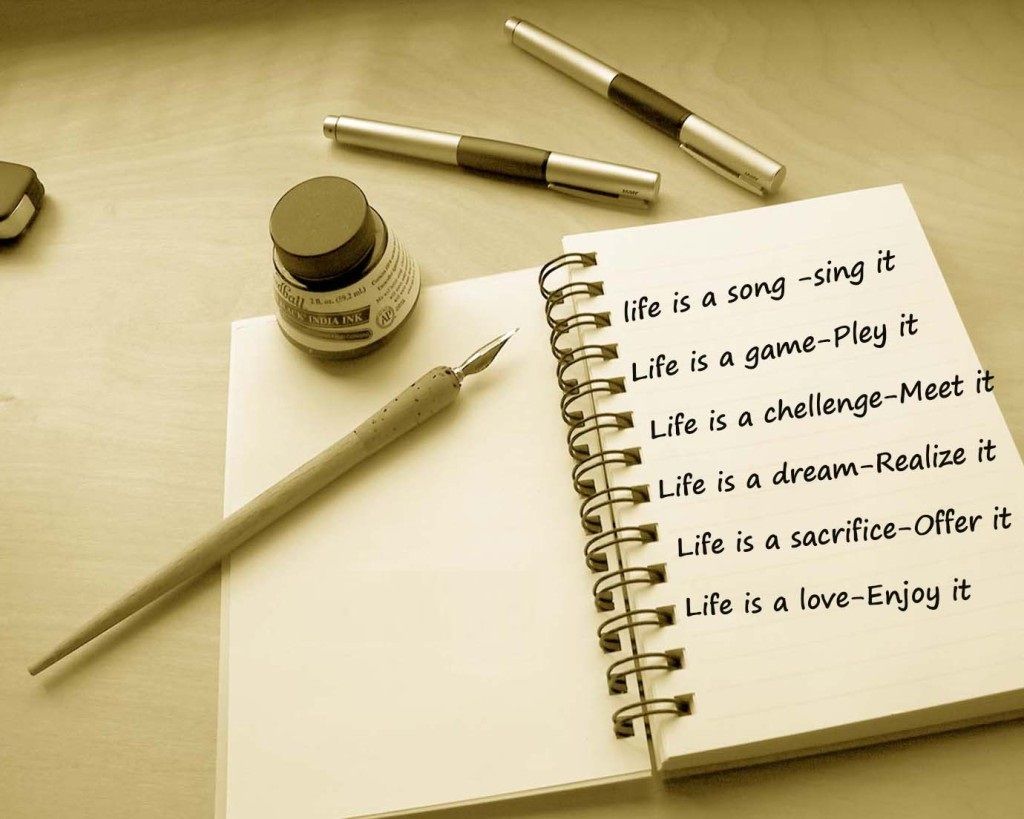 life is a song -sing it
Life is a game-Pley it
Life is a chellenge-Meet it
Life is a dream-Realize it
Life is a sacrifice-Offer it
Life is a love-Enjoy it
2 fl. oz. (59,2 mL)
INDIA INK
AP